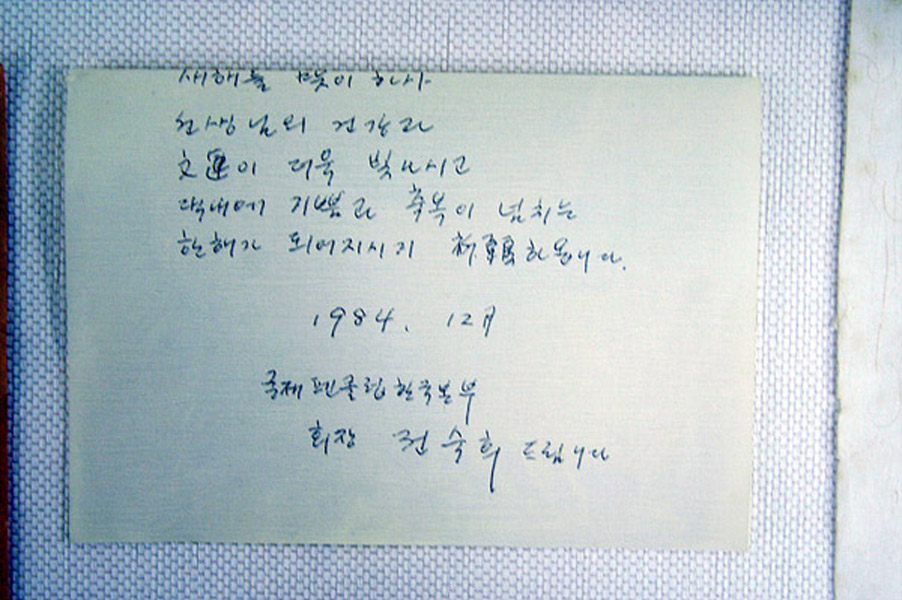 새해를 맞이하사
선생님의 건강과
文運이 더욱 빛나시고
댁내에 기쁨과 축복이 넘치는
한해가 되어지시기 祈願하옵니다.
1984. 12月
국제펜클럽한국본부
회장 전숙희 드립니다